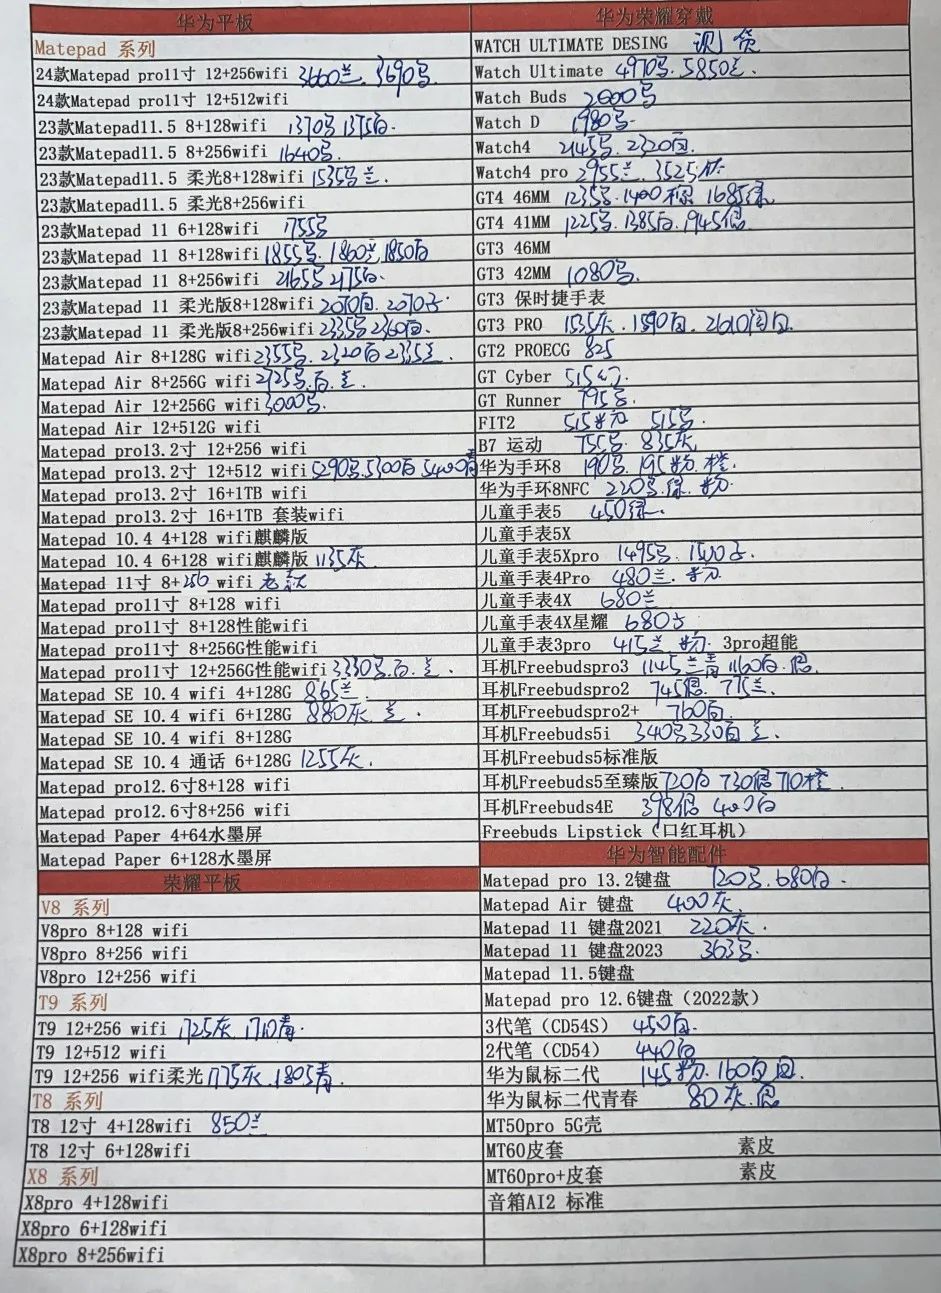 华为平板
Matepad 系列
24款Matepad pro11寸 12+256wifi 3660兰. 3690号
24款Matepad pro11寸 12+512wifi
23款Matepad11.5 8+128wifi 1370号 1375白.
23款Matepad11.5 8+256wifi 1640号.
23款Matepad11.5 柔光8+128wifi 1535号兰.
23款Matepad11.5 柔光8+256wifi
23款Matepad 11 6+128wifi 1755号
23款Matepad 11 8+128wifi 1855号. 1860兰. 1850白
23款Matepad 11 8+256wifi 2165号 2175白.
23款Matepad 11 柔光版8+128wifi 2070白. 2070
23款Matepad 11 柔光版8+256wifi 2335号 2360白.
Matepad Air 8+128G wifi 2355号. 2320白 2335兰.
Matepad Air 8+256G wifi 2725号.白.兰.
Matepad Air 12+256G wifi 3000号.
Matepad Air 12+512G wifi
Matepad pro13.2寸 12+256 wifi
Matepad pro13.2寸 12+512 wifi 5290号. 5300白 5400青
Matepad pro13.2寸 16+1TB wifi
Matepad pro13.2寸 16+1TB 套装wifi
Matepad 10.4 4+128 wifi麒麟版
Matepad 10.4 6+128 wifi麒麟版 1135灰
Matepad 11寸 8+256 wifi 老款
Matepad pro11寸 8+128 wifi
Matepad pro11寸 8+128性能wifi
Matepad pro11寸 8+256G性能wifi
Matepad pro11寸 12+256G性能wifi 3330号.白.兰.
Matepad SE 10.4 wifi 4+128G 865兰.
Matepad SE 10.4 wifi 6+128G 880灰. 兰.
Matepad SE 10.4 wifi 8+128G
Matepad SE 10.4 通话 6+128G 1255灰.
Matepad pro12.6寸8+128 wifi
Matepad pro12.6寸8+256 wifi
Matepad Paper 4+64水墨屏
Matepad Paper 6+128水墨屏
荣耀平板
V8 系列
V8pro 8+128 wifi
V8pro 8+256 wifi
V8pro 12+256 wifi
T9 系列
T9 12+256 wifi 1725灰 1710青.
T9 12+512 wifi
T9 12+256 wifi柔光 1775灰. 1805青.
T8 系列
T8 12寸 4+128wifi 850兰
T8 12寸 6+128wifi
X8 系列
X8pro 4+128wifi
X8pro 6+128wifi
X8pro 8+256wifi
华为荣耀穿戴
WATCH ULTIMATE DESING 货
Watch Ultimate 4970号. 5850兰.
Watch Buds 2000号
Watch D 1980号.
Watch4 2145号. 2320白.
Watch4 pro 2955兰. 3525
GT4 46MM 1235号. 1400棕 1685绿
GT4 41MM 1225号. 1385白. 1945银
GT3 46MM
GT3 42MM 1080号.
GT3 保时捷手表
GT3 PRO 1535灰. 1590白. 2610陶白
GT2 PROECG 825
GT Cyber 515幻.
GT Runner 795号.
FIT2 515粉 515号.
B7 运动 755号. 835灰
华为手环8 190号. 195粉. 橙.
华为手环8NFC 220号.绿. 粉.
儿童手表5 450绿.
儿童手表5X
儿童手表5Xpro 1495号. 1500
儿童手表4Pro 480兰. 粉.
儿童手表4X 680兰
儿童手表4X星耀 680
儿童手表3pro 415兰 粉. 3pro超能
耳机Freebudspro3 1145兰青 1160白.银.
耳机Freebudspro2 745银. 775兰.
耳机Freebudspro2+ 760白.
耳机Freebuds5i 340号 330白 兰.
耳机Freebuds5标准版
耳机Freebuds5至臻版 720白 730银 710橙.
耳机Freebuds4E 398银 400白
Freebuds Lipstick（口红耳机）
华为智能配件
Matepad pro 13.2键盘 720号. 680白.
Matepad Air 键盘 400灰.
Matepad 11 键盘2021 220灰.
Matepad 11 键盘2023 363号.
Matepad 11.5键盘
Matepad pro 12.6键盘（2022款）
3代笔（CD54S） 450白.
2代笔（CD54） 440白
华为鼠标二代 145粉. 160白
华为鼠标二代青春 80灰.银
MT50pro 5G壳
MT60皮套 素皮
MT60pro+皮套 素皮
音箱AI2 标准